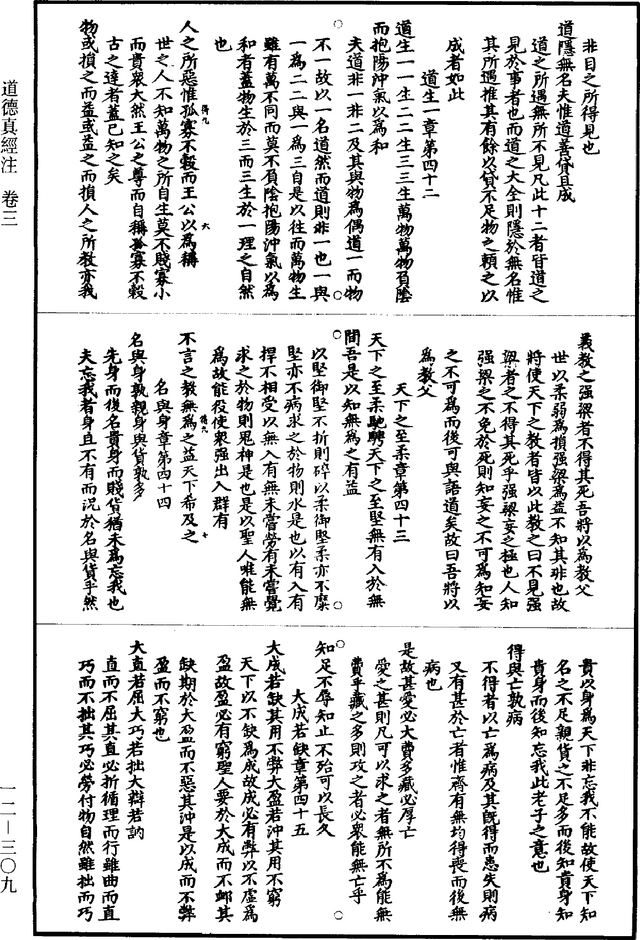 非目之所得見也
道隱無名夫惟道善貸且成
道之所遇無所不見凡此十二者皆道之
見於事者也而道之大全則隱於無名惟
其所遇推其有餘以貸不足物之賴之以
成者如此
道生一章第四十二
道生一一生二二生三三生萬物萬物負陰
而抱陽沖氣以為和
夫道非一非二及其與物為偶道一而物
不一故以一名道然而道則非一也一與
一為二二與一為三自是以往而萬物生
雖有萬不同而莫不負陰抱陽沖氣以為
和者蓋物生於三而三生於一理之自然
也
人之所惡惟孤寡不穀而王公以為稱
世之人不知萬物之所自生莫不賤寡小
而貴衆大然王公之尊而自稱孤寡不穀
古之達者蓋已知之矣
物或損之而益或益之而損人之所教亦我
義教之强梁者不得其死吾將以為教父
世以柔弱為損强梁為益不知其非也故
將使天下之教者皆以此教之曰不見强
梁者之不得其死乎强梁妄之極也人知
强梁之不免於死則知妄之不可為知妄
之不可為而後可與語道矣故曰吾將以
為教父
天下之至柔章第四十三
天下之至柔馳騁天下之至堅無有入於無
間吾是以知無為之有益
以堅御堅不折則碎以柔御堅柔亦不糜
堅亦不病求之於物則水是也以有入有
捍不相受以無入有無未嘗勞有未嘗覺
求之於物則鬼神是也是以聖人唯能無
為故能役使衆强出入群有
不言之教無為之益天下希及之
名與身章第四十四
名與身孰親身與貨孰多
先身而後名貴身而賤貨猶未為忘我也
夫忘我者身且不有而況於名與貨乎然
貴以身為天下非忘我不能故使天下知
名之不足親貨之不足多而後知貴身知
貴身而後知忘我此老子之意也
得與亡孰病
不得者以亡為病及其既得而患失則病
又有甚於亡者惟齊有無均得喪而後無
病也
是故甚愛必大費多藏必厚亡
愛之甚則凡可以求之者無所不為能無
費乎藏之多則攻之者必衆能無亡乎
知足不辱知止不殆可以長久
大成若缺章第四十五
大成若缺其用不弊大盈若沖其用不窮
天下以不缺為成故成必有弊以不虛為
盈故盈必有窮聖人要於大成而不卹其
缺期於大盈而不惡其沖是以成而不弊
盈而不窮也
大直若屈大巧若拙大辯若訥
直而不屈其直必折循理而行雖曲而直
巧而不拙其巧必勞付物自然雖拙而巧
道德真經注　卷三
一二－三〇九